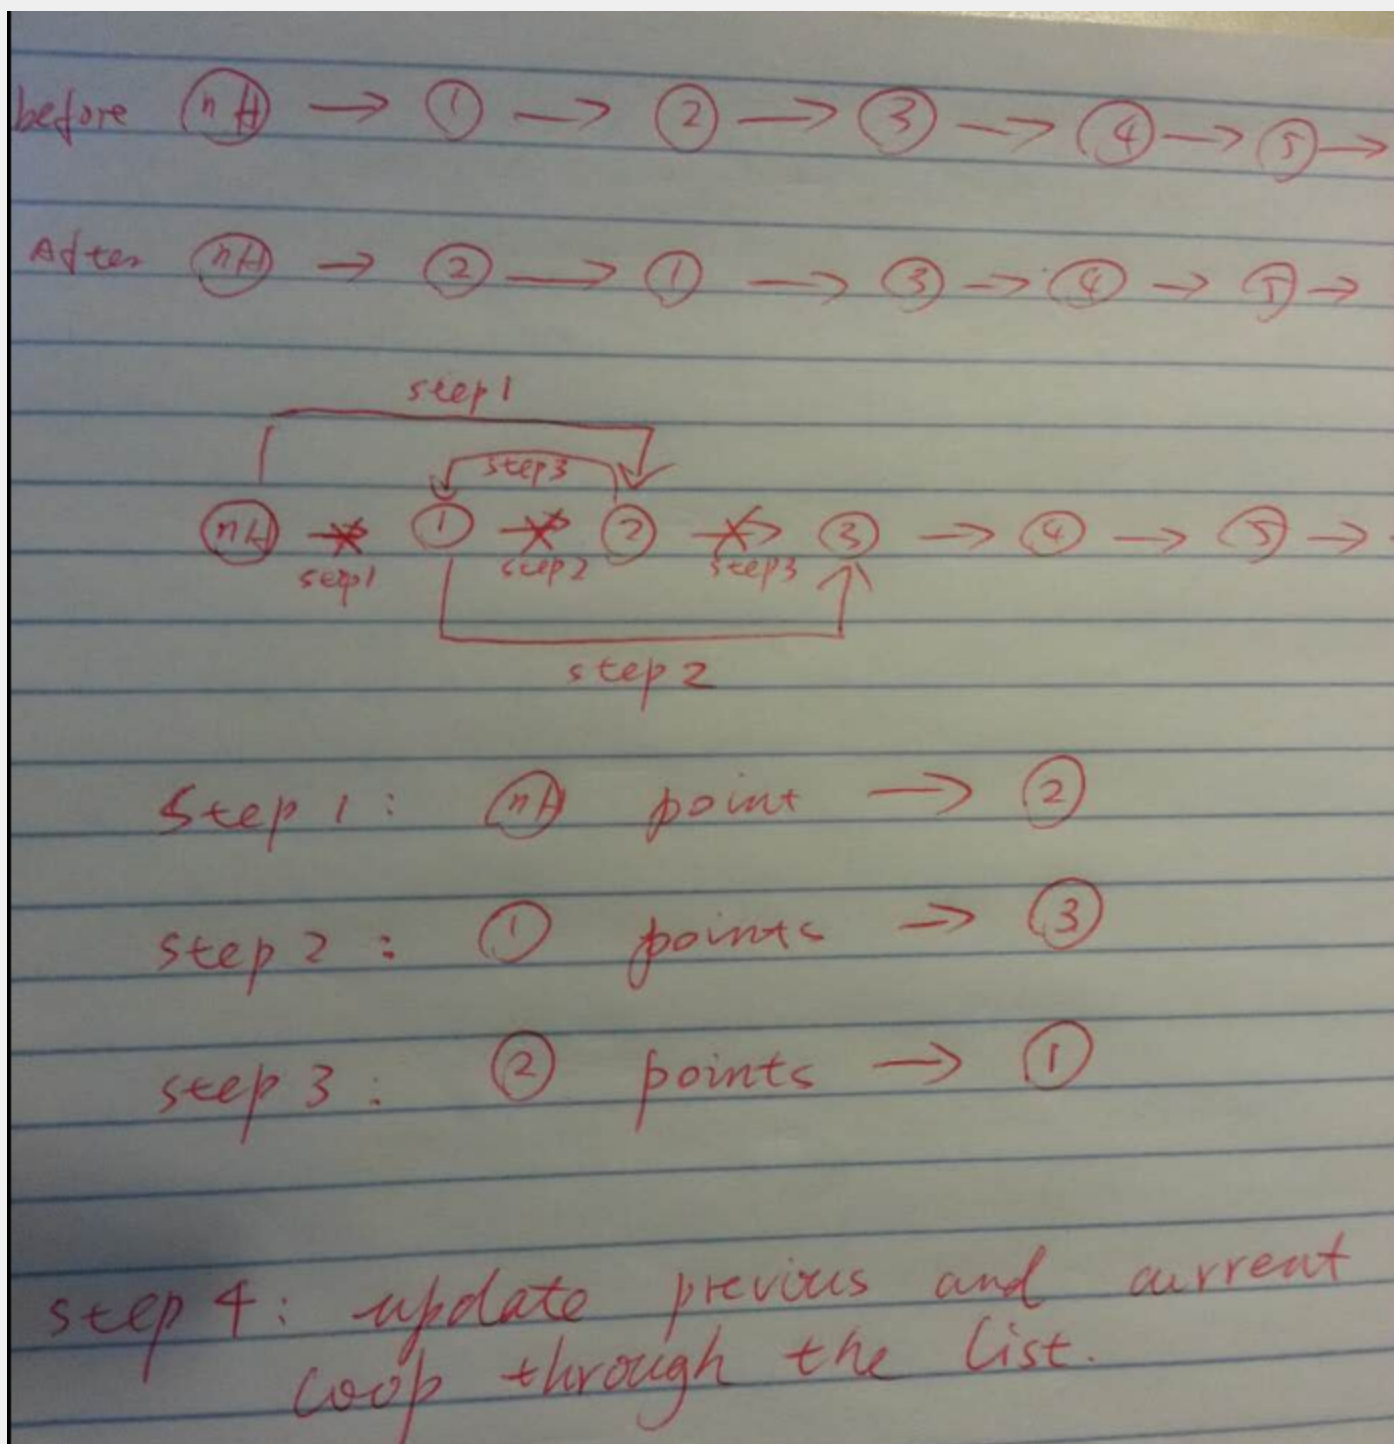 before nH → 1 → 2 → 3 → 4 → 5 →
After nH → 2 → 1 → 3 → 4 → 5 →
step1
step3
nH → 1 → 2 → 3 → 4 → 5 →
step1 step2 step3
step 2
Step 1 : nH point → 2
step 2 : 1 points → 3
step 3 : 2 points → 1
step 4 : update previous and current
loop through the list.